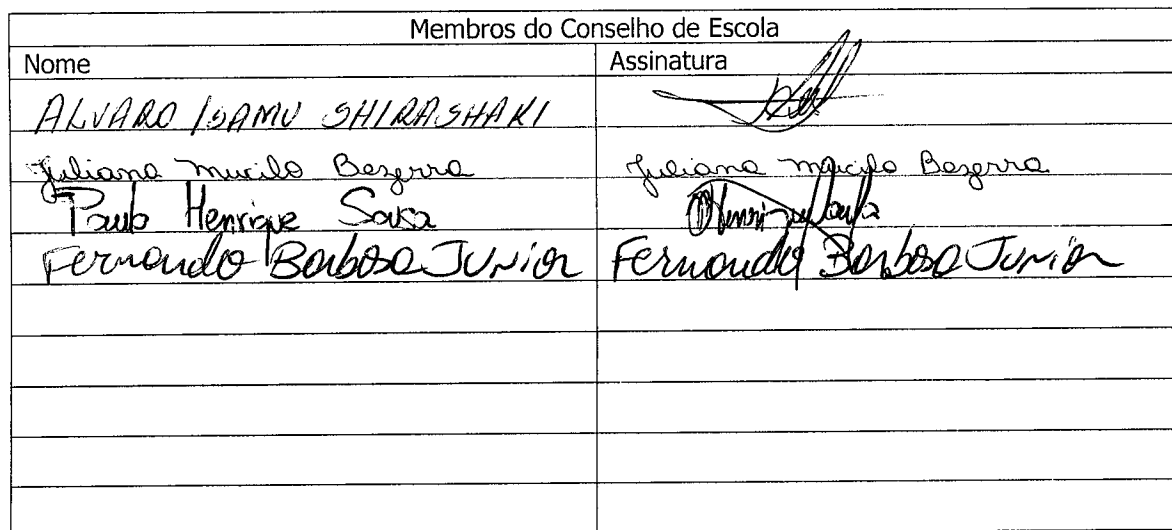 Membros do Conselho de Escola
Nome Assinatura
ALVARO ISAMU SHIRASHAKI
Juliana Murilo Bezerra Juliana Murilo Bezerra
Paulo Henrique Souza
Fernando Barbosa JUNior Fernando Barbosa JUNior